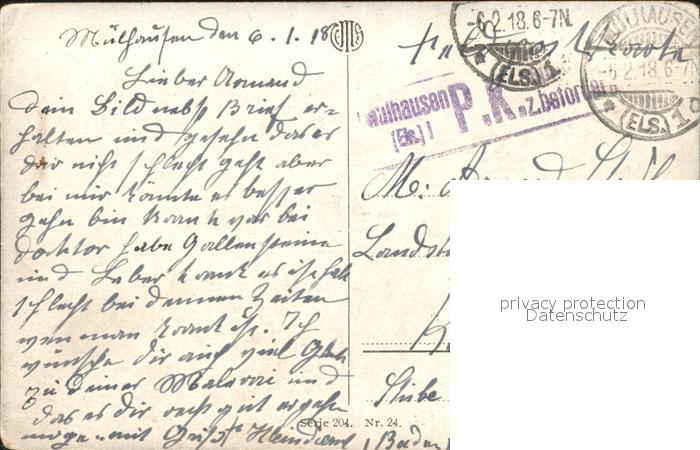 Mülhausen den 6. 1. 18
Lieber Armand
dein Bild nebst Brief er-
halten und gesehn das es
dir nicht schlecht geht aber
bei mir könnte es besser
gehn bin krank war bei
doktor habe Gallensteine
und Leber krank es ist halt
schlecht bei dennen Zeiten
wen man krank ist. Ich
wünsche dir auch viel Glück
zu deiner Malerei und
das es dir recht gut ergehn
möge. mit Gruß
Serie 204. Nr. 24.
-6.2.18.6-7N.
(ELS.) 1
MÜLHAUSEN
-6.2.18.6-7N
(ELS.) 1
Mülhausen
(Els.) 1
P.K. z. befördern
M:
Landst
K
Stube
Baden
privacy protection
Datenschutz